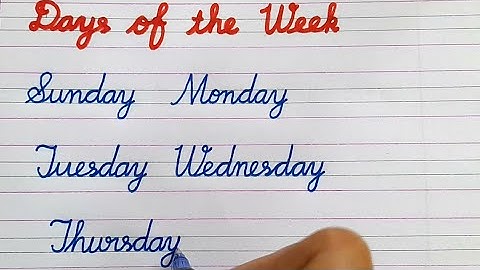 Days of the Week
Sunday Monday
Tuesday Wednesday
Thursday